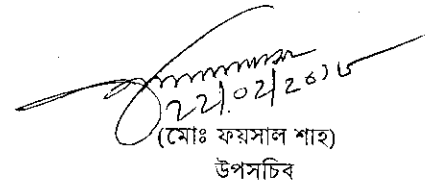 22/02/2018
(মোঃ ফয়সাল শাহ)
উপসচিব